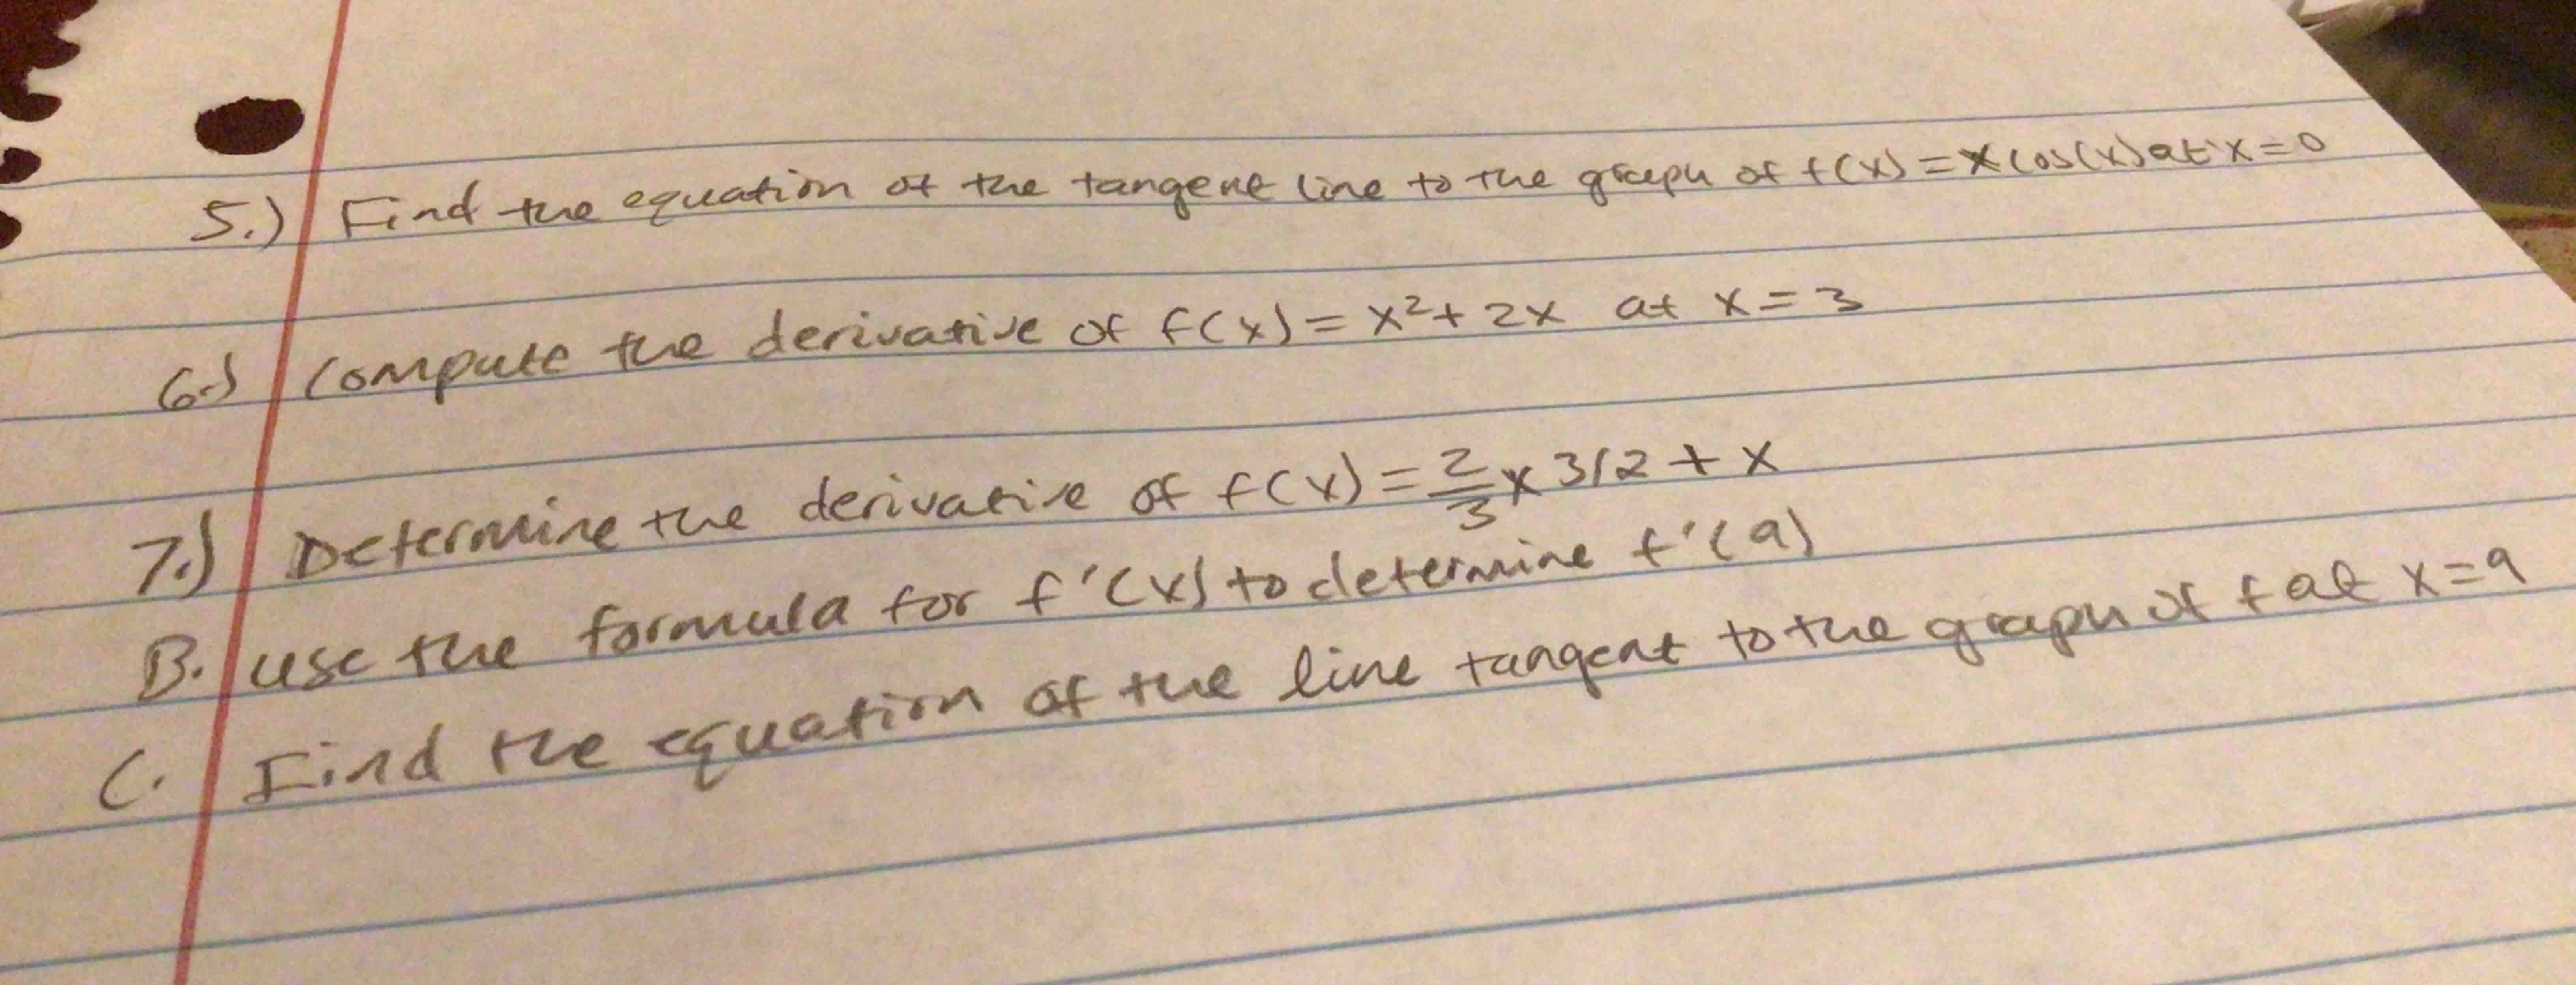 5.) Find the equation of the tangent line to the graph of f(x) = x cos(x) at x = 0
6.) Compute the derivative of f(x) = x² + 2x at x = 3
7.) Determine the derivative of f(x) = 2/3 x 3/2 + x
B. use the formula for f'(x) to determine f'(9)
C. Find the equation of the line tangent to the graph of f at x = 9